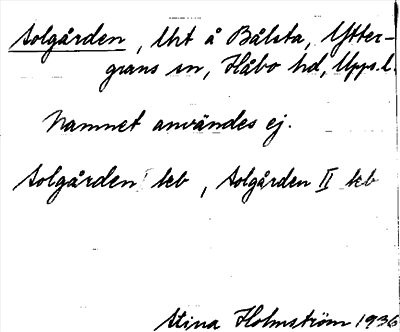 Solgården, lht å Bålsta, Ytter-
grans sn, Håbo hd, Upps.l.
Namnet användes ej.
Solgården kb, Solgården II kb
Stina Holmström 1936